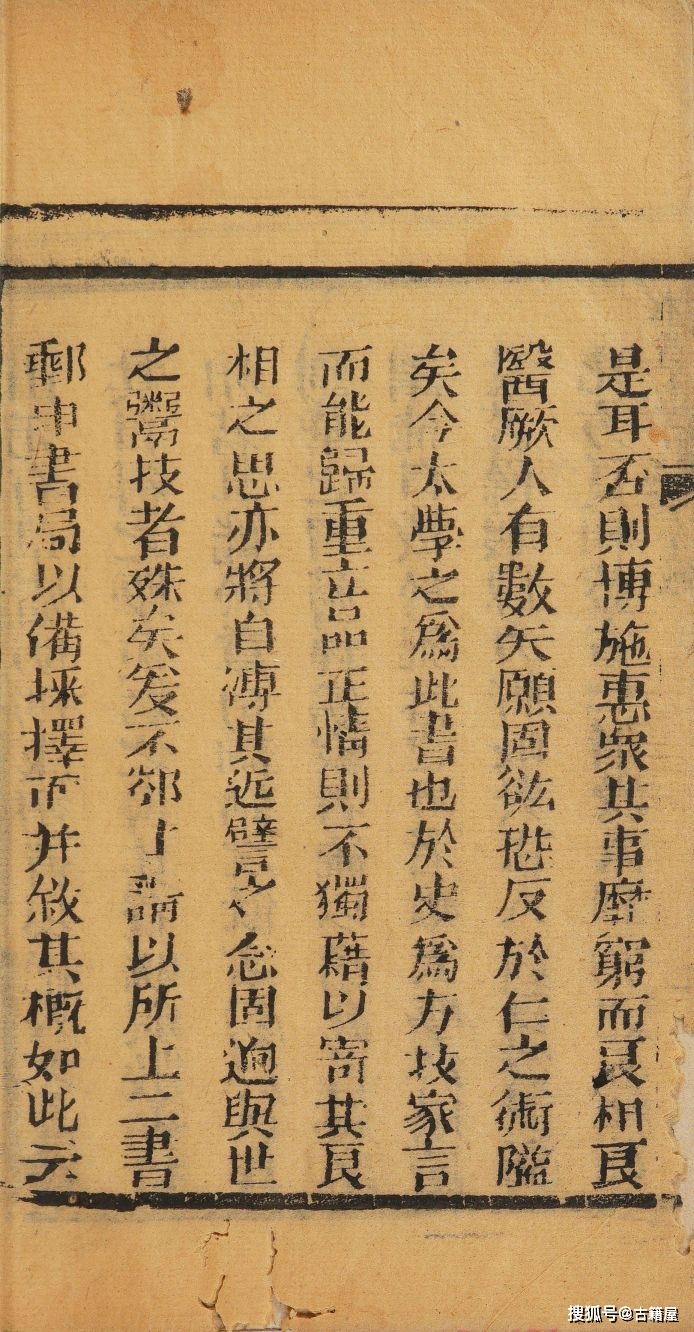 是耳否則博施惠眾其事靡窮而良相良
醫厥人有數矢願固欲濟反於仁之術隘
矣今太學之為此書也於史為方技家言
而能歸重立品正情則不獨藉以寄其良
相之思亦將自溥其近譬之念固迥與世
之鬻技者殊矣爰不鄙上請以所上二書
郵中書局以備採擇而并敘其概如此云
搜狐号@古籍屋